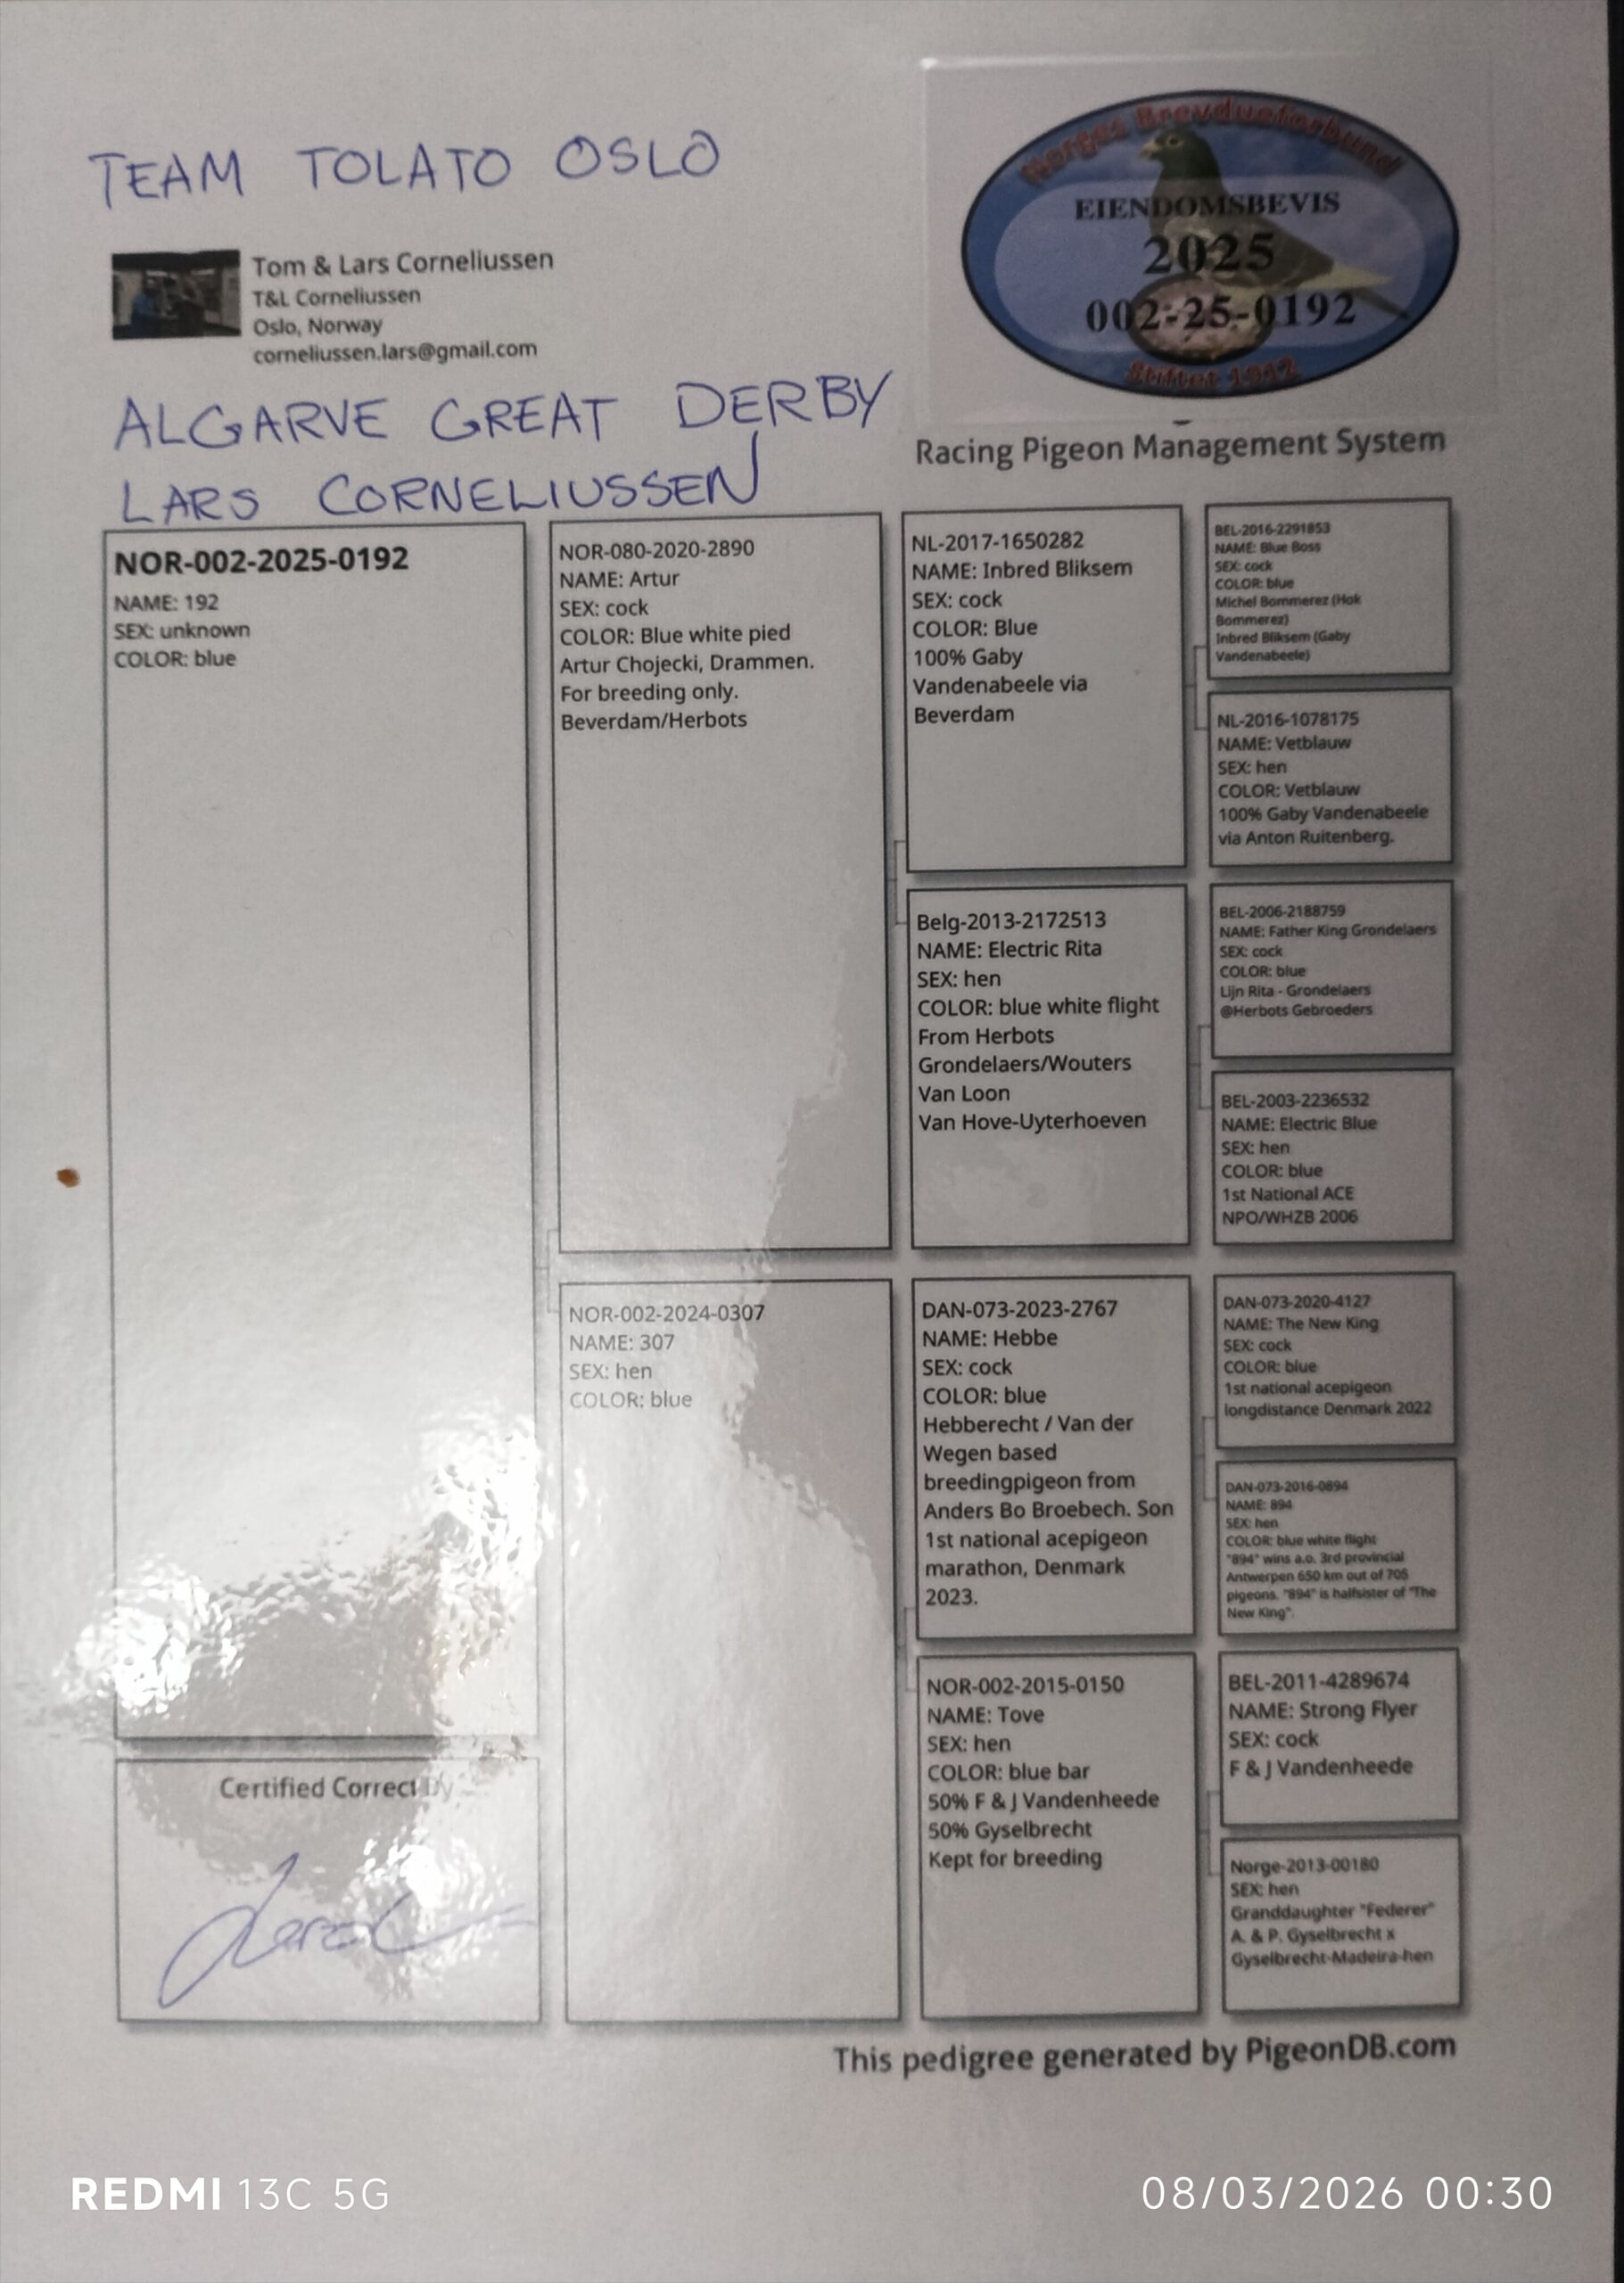 TEAM TOLATO OSLO
Norges Brevdueforbund
EIENDOMSBEVIS
2025
002-25-0192
Stiftet 1912
Tom & Lars Corneliussen
T&L Corneliussen
Oslo, Norway
corneliussen.lars@gmail.com
ALGARVE GREAT DERBY
LARS CORNELIUSSEN
Racing Pigeon Management System
NOR-002-2025-0192
NAME: 192
SEX: unknown
COLOR: blue
NOR-080-2020-2890
NAME: Artur
SEX: cock
COLOR: Blue white pied
Artur Chojecki, Drammen.
For breeding only.
Beverdam/Herbots
NL-2017-1650282
NAME: Inbred Bliksem
SEX: cock
COLOR: Blue
100% Gaby
Vandenabeele via
Beverdam
BEL-2016-2291853
NAME: Blue Boss
SEX: cock
COLOR: blue
Michel Bommerez (Hok
Bommerez)
Inbred Bliksem (Gaby
Vandenabeele)
NL-2016-1078175
NAME: Vetblauw
SEX: hen
COLOR: Vetblauw
100% Gaby Vandenabeele
via Anton Ruitenberg.
Belg-2013-2172513
NAME: Electric Rita
SEX: hen
COLOR: blue white flight
From Herbots
Grondelaers/Wouters
Van Loon
Van Hove-Uyterhoeven
BEL-2006-2188759
NAME: Father King Grondelaers
SEX: cock
COLOR: blue
Lijn Rita - Grondelaers
@Herbots Gebroeders
BEL-2003-2236532
NAME: Electric Blue
SEX: hen
COLOR: blue
1st National ACE
NPO/WHZB 2006
NOR-002-2024-0307
NAME: 307
SEX: hen
COLOR: blue
DAN-073-2023-2767
NAME: Hebbe
SEX: cock
COLOR: blue
Hebberecht / Van der
Wegen based
breedingpigeon from
Anders Bo Broebech. Son
1st national acepigeon
marathon, Denmark
2023.
DAN-073-2020-4127
NAME: The New King
SEX: cock
COLOR: blue
1st national acepigeon
longdistance Denmark 2022
DAN-073-2016-0894
NAME: 894
SEX: hen
COLOR: blue white flight
"894" wins a.o. 3rd provincial
Antwerpen 650 km out of 705
pigeons. "894" is halfsister of "The
New King".
NOR-002-2015-0150
NAME: Tove
SEX: hen
COLOR: blue bar
50% F & J Vandenheede
50% Gyselbrecht
Kept for breeding
BEL-2011-4289674
NAME: Strong Flyer
SEX: cock
F & J Vandenheede
Norge-2013-00180
SEX: hen
Granddaughter "Federer"
A. & P. Gyselbrecht x
Gyselbrecht-Madeira-hen
Certified Correct By
This pedigree generated by PigeonDB.com
REDMI 13C 5G
08/03/2026 00:30